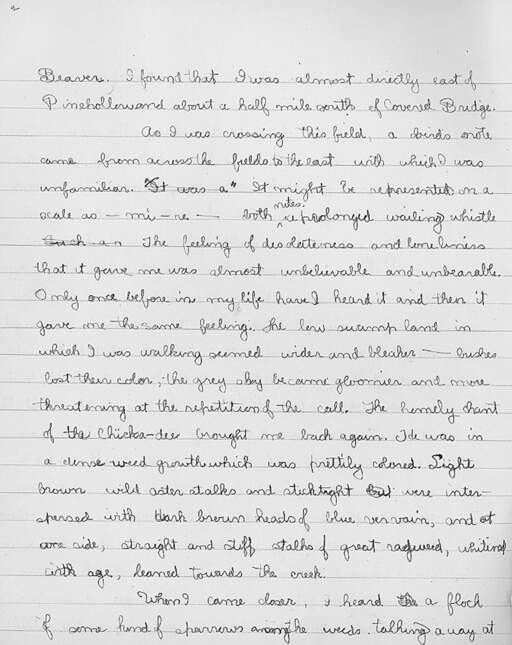 2
Beaver. I found that I was almost directly east of
Pinehollow and about a half mile south of Covered Bridge.
As I was crossing this field, a birds note
came from across the fields to the east with which I was
unfamiliar. It was a" It might be represented on a
scale as — mi — re — both notes. prolonged wailing whistle
Such a The feeling of desolateness and loneliness
that it gave me was almost unbelievable and unbearable.
Only once before in my life have I heard it and then it
gave me the same feeling. The low swamp land in
which I was walking seemed wider and bleaker — bushes
lost their color, the grey sky became gloomier and more
threatening at the repetition of the call. The homely chant
of the Chicka-dee brought me back again. He was in
a dense weed growth which was prettily colored. Light
brown wild aster stalks and sticktight were inter-
spersed with dark brown heads of blue vervain, and at
one side, straight and stiff stalks of great ragweed, whitened
with age, leaned towards the creek.
When I came closer, I heard a flock
of some kind of sparrows among the weeds talking away at